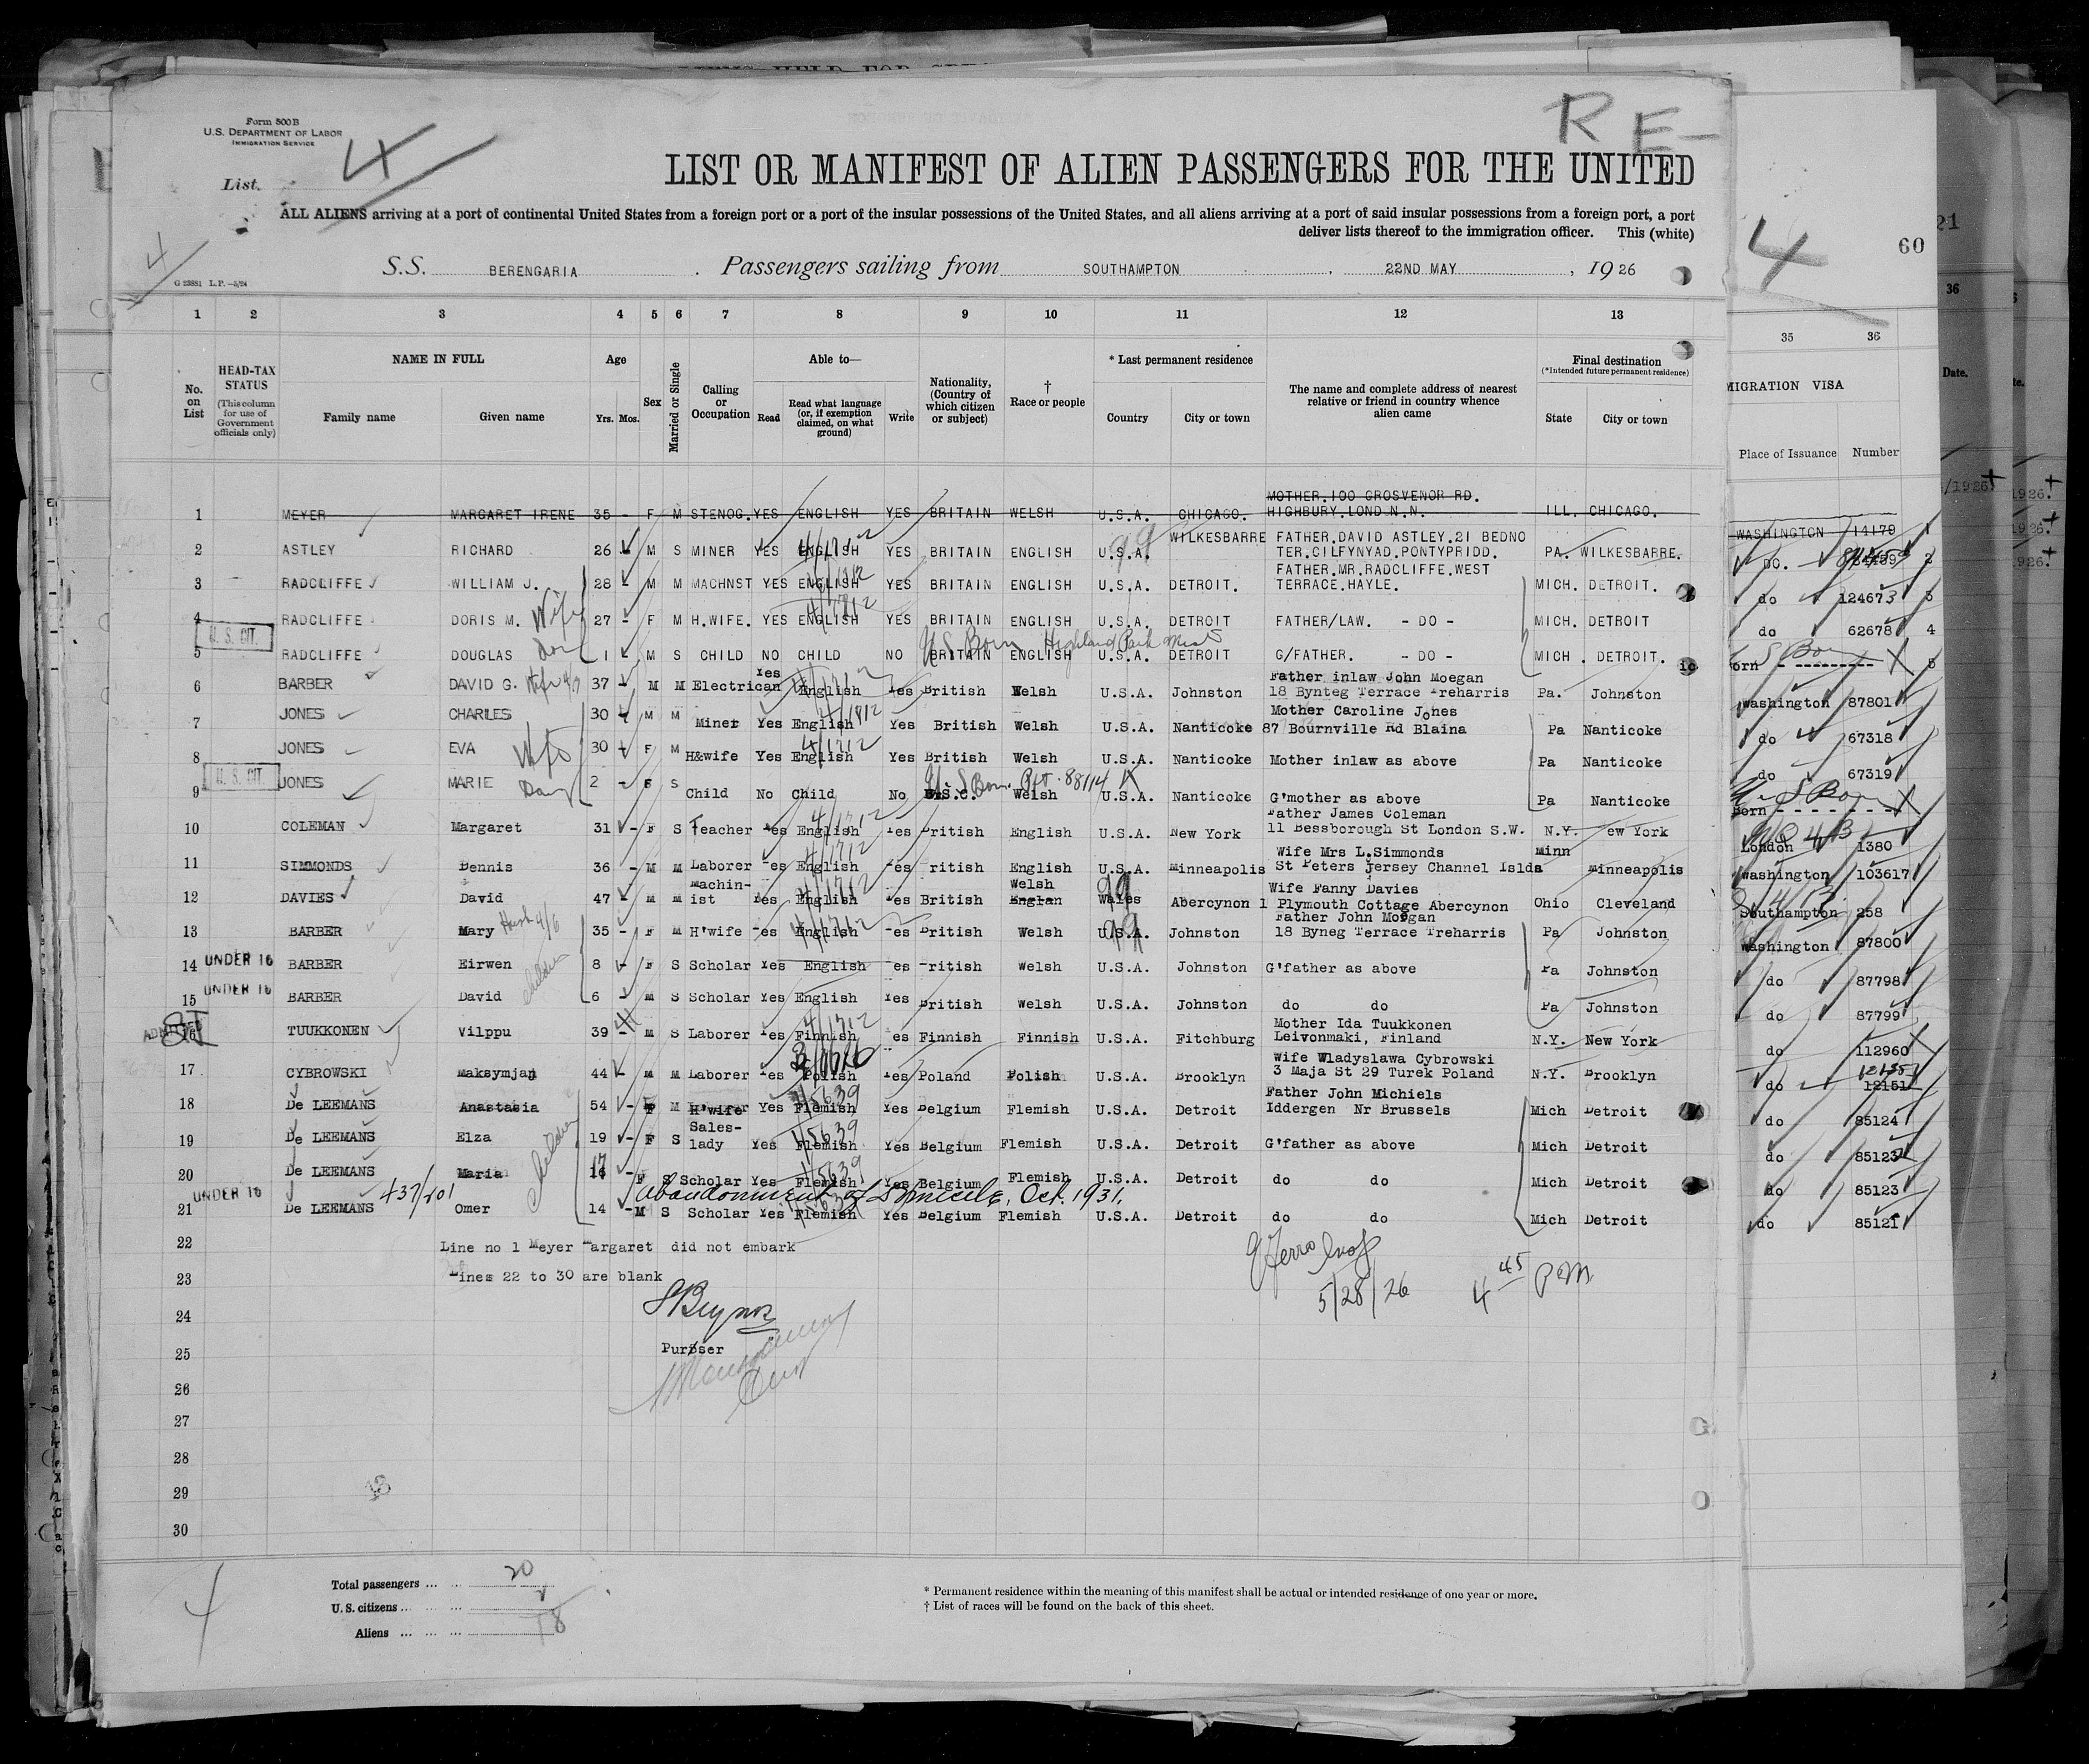 Form 500B
U.S. DEPARTMENT OF LABOR
IMMIGRATION SERVICE
RE-
List 4
LIST OR MANIFEST OF ALIEN PASSENGERS FOR THE UNITED
ALL ALIENS arriving at a port of continental United States from a foreign port or a port of the insular possessions of the United States, and all aliens arriving at a port of said insular possessions from a foreign port, a port
deliver lists thereof to the immigration officer. This (white)
4 60
4
S.S. BERENGARIA . Passengers sailing from SOUTHAMPTON , 22ND MAY , 1926
G 23881 L.P.—5/24
1 2 3 4 5 6 7 8 9 10 11 12 13 35 36
No. on List
HEAD-TAX STATUS (This column for use of Government officials only)
NAME IN FULL
Family name Given name
Age
Yrs. Mos.
Sex
Married or Single
Calling or Occupation
Able to—
Read Read what language (or, if exemption claimed, on what ground) Write
Nationality, (Country of which citizen or subject)
† Race or people
* Last permanent residence
Country City or town
The name and complete address of nearest relative or friend in country whence alien came
Final destination
(*Intended future permanent residence)
State City or town
MIGRATION VISA
Place of Issuance Number
1 MEYER MARGARET IRENE 35 - F M STENOG. YES ENGLISH YES BRITAIN WELSH U.S.A. CHICAGO. MOTHER.100 GROSVENOR RD. HIGHBURY.LOND.N.N. ILL. CHICAGO. WASHINGTON 14179 1
2 ASTLEY RICHARD 26 M S MINER YES ENGLISH YES BRITAIN ENGLISH U.S.A. WILKESBARRE FATHER.DAVID ASTLEY.21 BEDNO TER.CILFYNYAD.PONTYPRIDD. PA. WILKESBARRE. DO. 2
3 RADCLIFFE WILLIAM J. 28 M M MACHNST YES ENGLISH YES BRITAIN ENGLISH U.S.A. DETROIT. FATHER.MR.RADCLIFFE.WEST TERRACE.HAYLE. MICH. DETROIT. do 124673 3
4 RADCLIFFE DORIS M. Wife 27 - F M H.WIFE. YES ENGLISH YES BRITAIN ENGLISH U.S.A. DETROIT FATHER/LAW. - DO - MICH. DETROIT do 62678 4
U. S. CIT. U S Born Highland Park Mich
5 RADCLIFFE DOUGLAS Son 1 - M S CHILD NO CHILD NO BRITAIN ENGLISH U.S.A. DETROIT G/FATHER. - DO - MICH. DETROIT. orn 5
6 BARBER DAVID G. 37 M M Electrican Yes English Yes British Welsh U.S.A. Johnston Father inlaw John Moegan 18 Bynteg Terrace Treharris Pa. Johnston Washington 87801
7 JONES CHARLES 30 M M Miner Yes English Yes British Welsh U.S.A. Nanticoke Mother Caroline Jones 87 Bournville Rd Blaina Pa Nanticoke do 67318
8 JONES EVA Wife 30 F M H&wife Yes English Yes British Welsh U.S.A. Nanticoke Mother inlaw as above Pa Nanticoke do 67319
U. S. CIT. U. S Born. 88114
9 JONES MARIE 2 - F S Child No Child No U.S.C. Welsh U.S.A. Nanticoke G'mother as above Pa Nanticoke U S Born Born
10 COLEMAN Margaret 31 - F S Teacher Yes English Yes British English U.S.A. New York Father James Coleman 11 Bessborough St London S.W. N.Y. ew York London 1380
11 SIMMONDS Dennis 36 - M M Laborer Yes English Yes ritish English U.S.A. Minneapolis Wife Mrs L.Simmonds St Peters Jersey Channel Islds Minn Minneapolis Washington 103617
12 DAVIES David 47 M M Machin-ist Yes English Yes British Welsh Englan Wales Abercynon Wife Fanny Davies 1 Plymouth Cottage Abercynon Ohio Cleveland Southampton 258
13 BARBER Mary 35 - F M H'wife Yes English Yes British Welsh U.S.A. Johnston Father John Morgan 18 Byneg Terrace Treharris Pa Johnston Washington 87800
14 UNDER 16 BARBER Eirwen children 8 - F S Scholar Yes English es ritish Welsh U.S.A. Johnston G'father as above Pa Johnston do 87798
15 UNDER 16 BARBER David 6 M S Scholar Yes English Yes British Welsh U.S.A. Johnston do do Pa Johnston do 87799
16 TUUKKONEN Vilppu 39 - M S Laborer Yes Finnish es Finnish Finnish U.S.A. Fitchburg Mother Ida Tuukkonen Leivonmaki, Finland N.Y. New York do 112960
17 CYBROWSKI Maksymjan 44 - M M Laborer Yes Polish Yes Poland Polish U.S.A. Brooklyn Wife Wladyslawa Cybrowski 3 Maja St 29 Turek Poland N.Y. Brooklyn do 12151
18 De LEEMANS Anastasia 54 - F M H'wife Yes Flemish Yes Belgium Flemish U.S.A. Detroit Father John Michiels Iddergen Nr Brussels Mich Detroit do 85124
19 De LEEMANS Elza 19 - F S Sales-lady Yes Flemish Yes Belgium Flemish U.S.A. Detroit G'father as above Mich Detroit do 85122
20 De LEEMANS Maria 17 - F S Scholar Yes Flemish Yes Belgium Flemish U.S.A. Detroit do do Mich Detroit do 85123
abandonment of Domicile, Oct. 1931.
21 UNDER 16 De LEEMANS Omer 14 - M S Scholar Yes Flemish Yes Belgium Flemish U.S.A. Detroit do do Mich Detroit do 85121
22 Line no 1 Meyer Margaret did not embark
23 Lines 22 to 30 are blank
5/28/26 4 45 P.M.
24
25 Purser
26
27
28
29
30
4
Total passengers 20
U. S. citizens 2
Aliens 18
* Permanent residence within the meaning of this manifest shall be actual or intended residence of one year or more.
† List of races will be found on the back of this sheet.